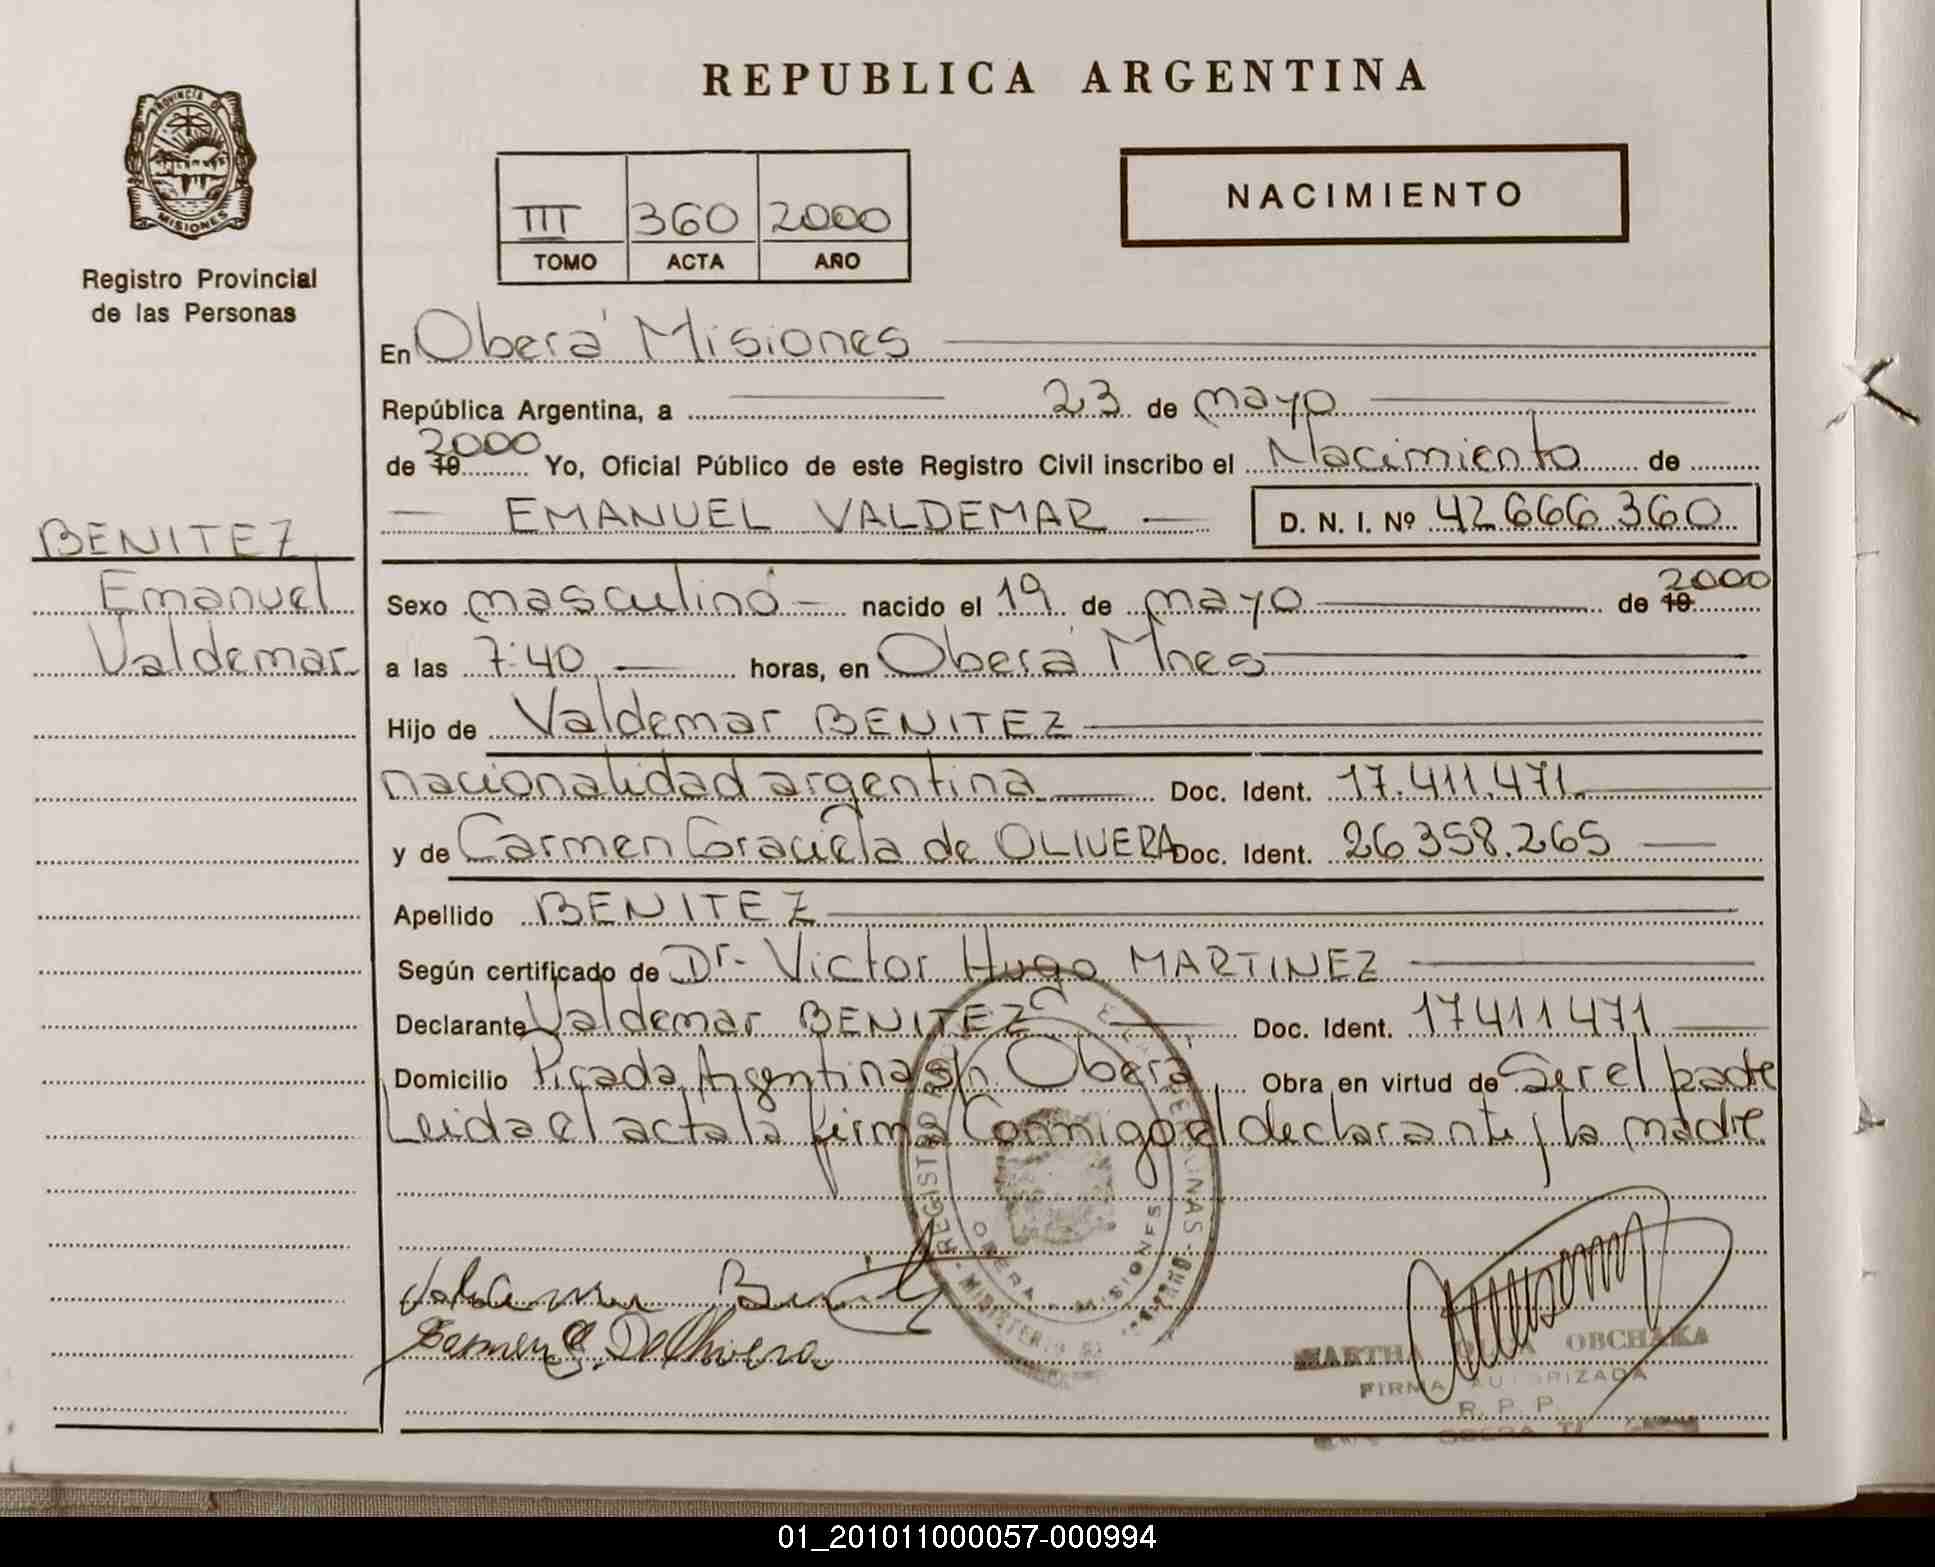 REPUBLICA ARGENTINA
PROVINCIA D
MISIONES
Registro Provincial
de las Personas
NACIMIENTO
III 360 2000
TOMO ACTA AÑO
En Oberá Misiones
República Argentina, a 23 de mayo
de 19 2000 Yo, Oficial Público de este Registro Civil inscribo el Nacimiento de
EMANUEL VALDEMAR D. N. I. Nº 42666360
BENITEZ
Emanuel
Valdemar
Sexo masculino nacido el 19 de mayo de 19 2000
a las 7:40 horas, en Oberá Mnes
Hijo de Valdemar BENITEZ
nacionalidad argentina Doc. Ident. 17.411.471
y de Carmen Graciela de OLIVERA Doc. Ident. 26358.265
Apellido BENITEZ
Según certificado de Dr. Victor Hugo MARTINEZ
Declarante Valdemar BENITEZ Doc. Ident. 17411471
Domicilio Picada Argentina s/n Oberá Obra en virtud de Ser el padre
Leida el acta la firma Conmigo el declarante y la madre
REGISTRO
OBERA - MISIONES
MINISTERIO
MARTHA OBCHAKA
FIRMA AUTORIZADA
R. P. P.
OBERA
01_201011000057-000994